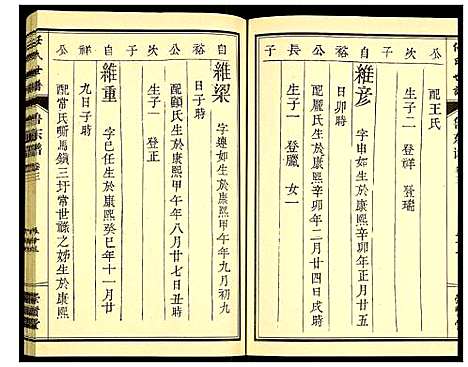 配王氏
生子二 登祥 登瑞
子 公 次 子
維彥 字申如生於康熙辛卯年正月廿五
日卯時
配嚴氏生於康熙辛卯年二月廿四日戌時
生子一 登臘 女一
公 長 子
自 裕 公 次 子
維梁 字遵如生於康熙甲午年九月初九
配顧氏生於康熙甲午年八月廿七日丑時
生子一 登正
自 裕 公
維重 字巳任生於康熙癸巳年十一月廿
九日子時
配常氏嘶馬鎮三圩常世祿之姊生於康熙
氏世譜
卷三